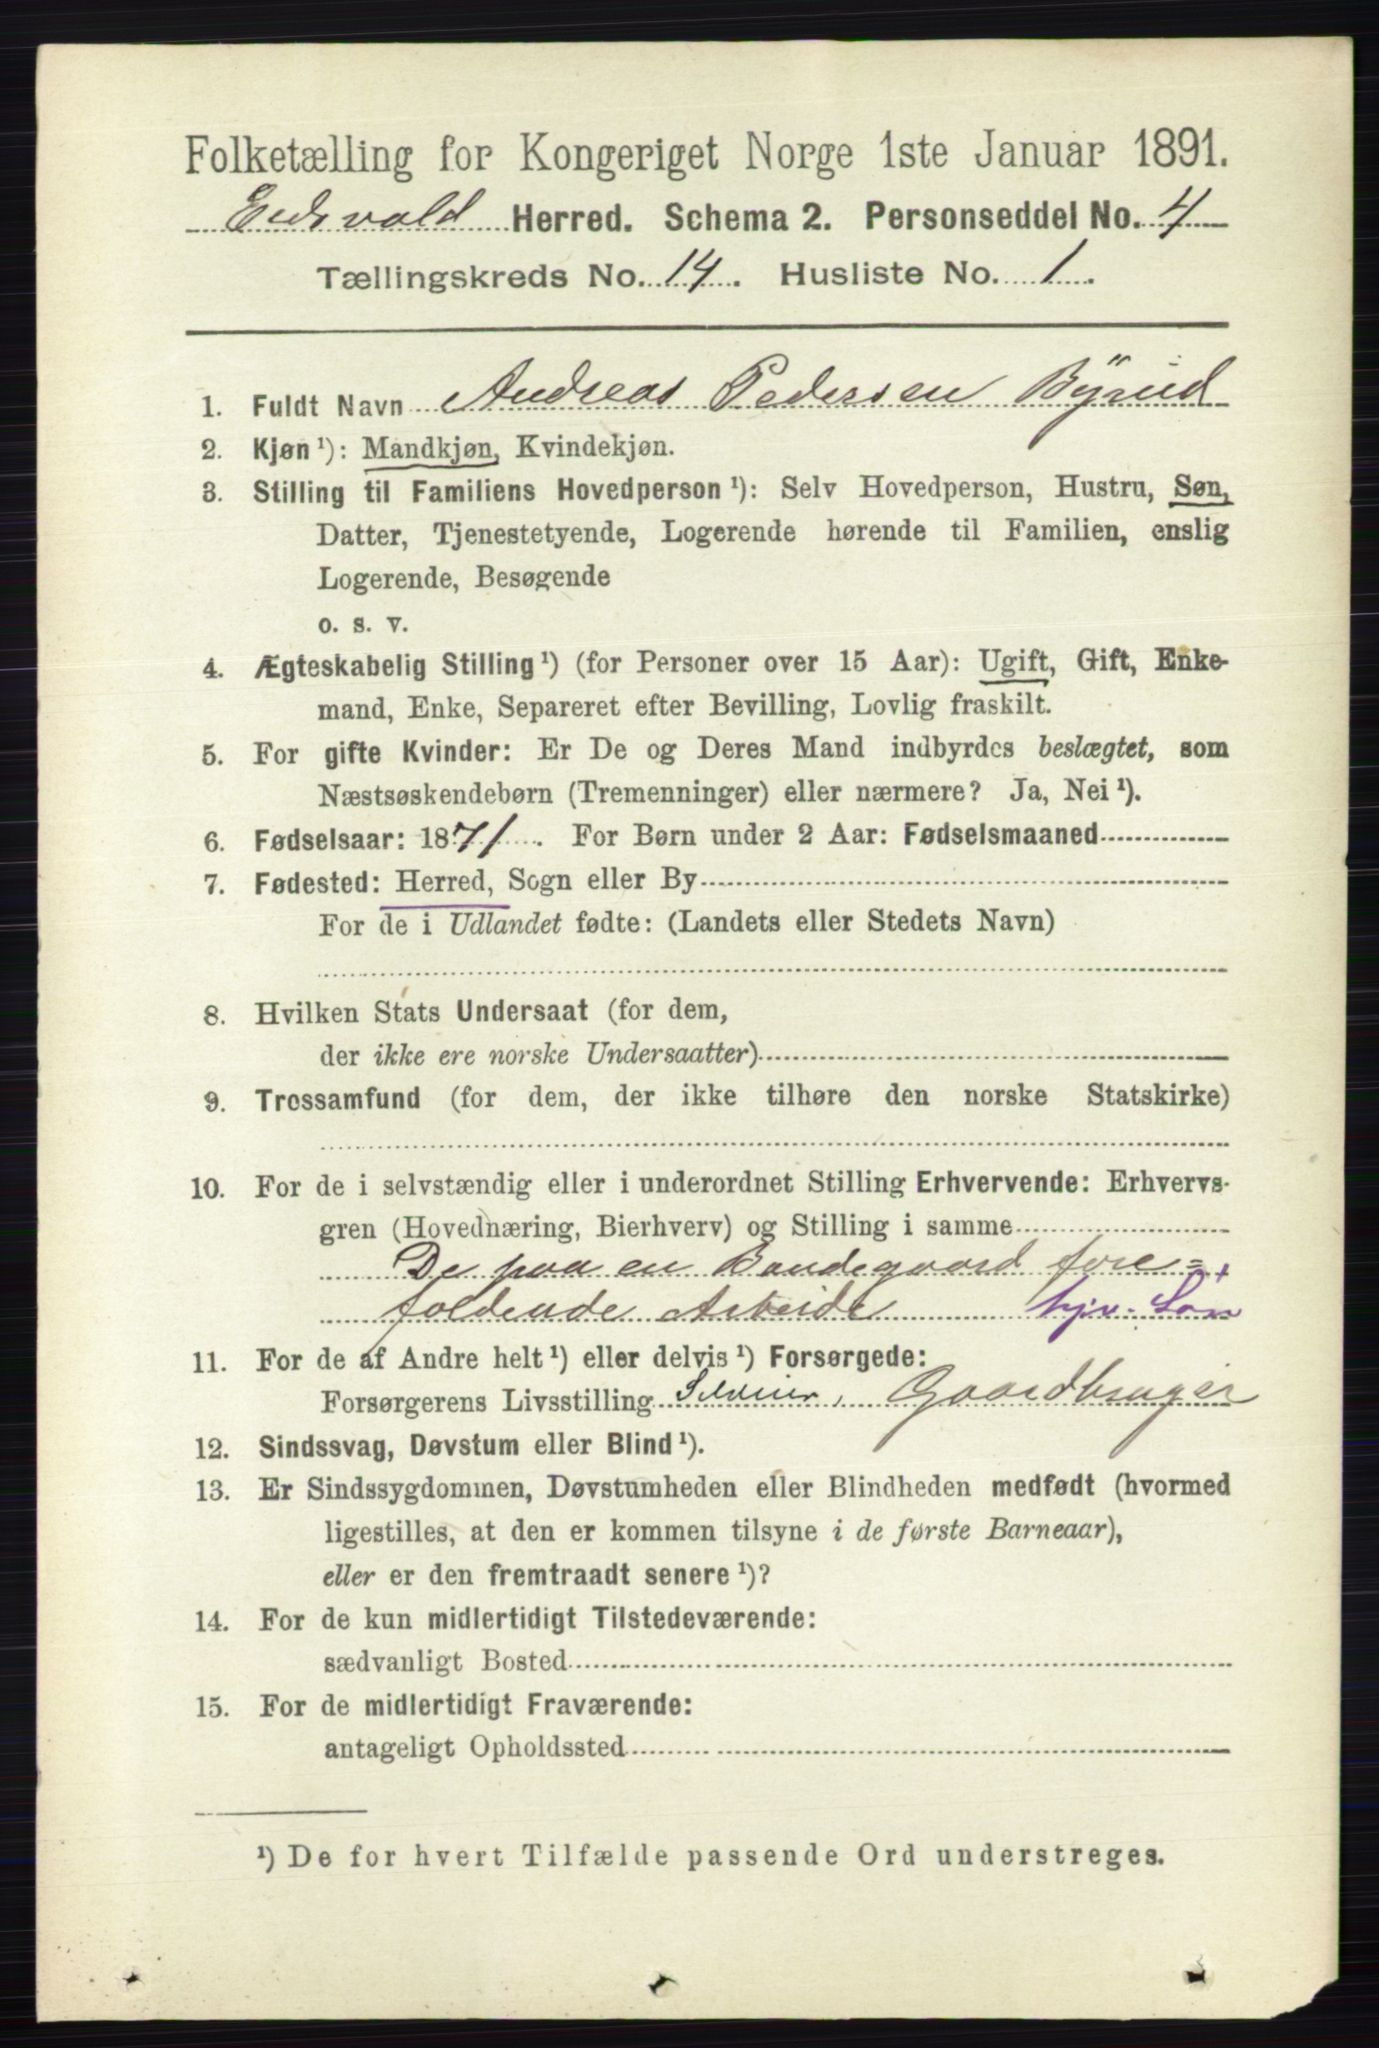 Folketælling for Kongeriget Norge 1ste Januar 1891.
Eidsvold Herred. Schema 2. Personseddel No. 4
Tællingskreds No. 14. Husliste No. 1.
1. Fuldt Navn Andreas Pedersen Byrud
2. Kjøn ¹): Mandkjøn, Kvindekjøn.
3. Stilling til Familiens Hovedperson ¹): Selv Hovedperson, Hustru, Søn,
Datter, Tjenestetyende, Logerende hørende til Familien, enslig
Logerende, Besøgende
o. s. v.
4. Ægteskabelig Stilling ¹) (for Personer over 15 Aar): Ugift, Gift, Enke-
mand, Enke, Separeret efter Bevilling, Lovlig fraskilt.
5. For gifte Kvinder: Er De og Deres Mand indbyrdes beslægtet, som
Næstsøskendebørn (Tremenninger) eller nærmere? Ja, Nei ¹).
6. Fødselsaar: 1871. For Børn under 2 Aar: Fødselsmaaned
7. Fødested: Herred, Sogn eller By
For de i Udlandet fødte: (Landets eller Stedets Navn)
8. Hvilken Stats Undersaat (for dem,
der ikke ere norske Undersaatter)
9. Trossamfund (for dem, der ikke tilhøre den norske Statskirke)
10. For de i selvstændig eller i underordnet Stilling Erhvervende: Erhvervs-
gren (Hovednæring, Bierhverv) og Stilling i samme
De paa en Bondegaard fore=
faldende Arbeide hjv. Søn
11. For de af Andre helt ¹) eller delvis ¹) Forsørgede:
Forsørgerens Livsstilling Selveier, Gaardbruger
12. Sindssvag, Døvstum eller Blind ¹).
13. Er Sindssygdommen, Døvstumheden eller Blindheden medfødt (hvormed
ligestilles, at den er kommen tilsyne i de første Barneaar),
eller er den fremtraadt senere ¹)?
14. For de kun midlertidigt Tilstedeværende:
sædvanligt Bosted
15. For de midlertidigt Fraværende:
antageligt Opholdssted
¹) De for hvert Tilfælde passende Ord understreges.